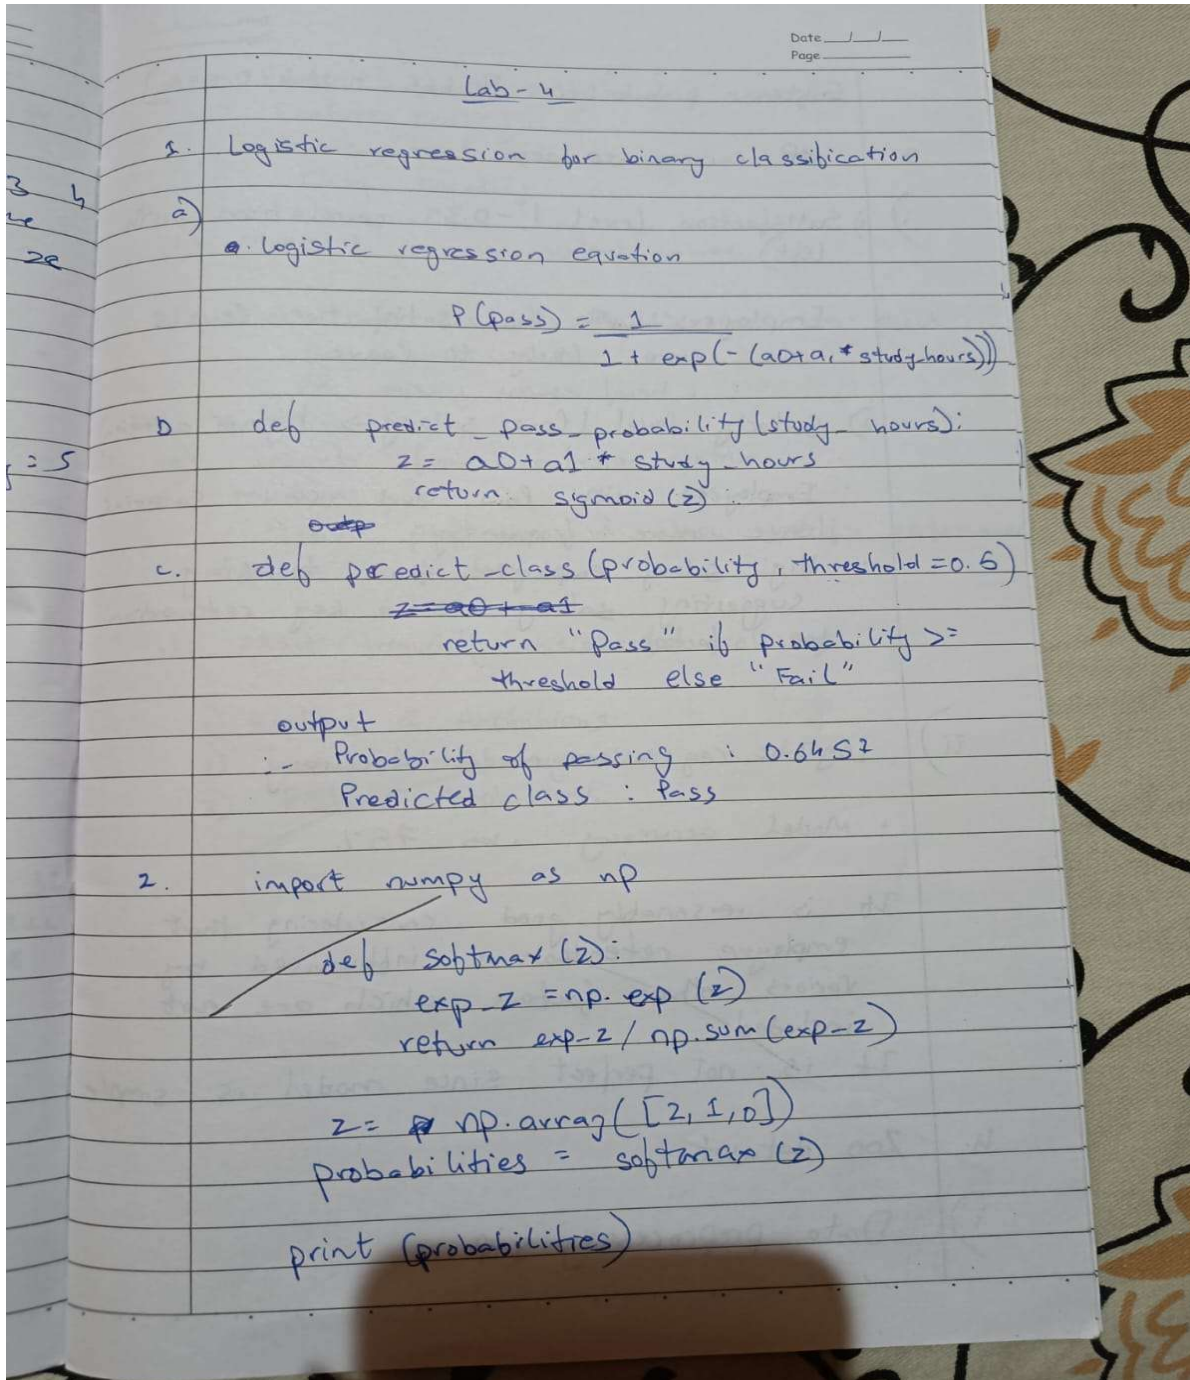 Date
Page
Lab-4
1. Logistic regression for binary classification
a)
. Logistic regression equation
P(pass) = 1
1 + exp(-(a0+a1 * study-hours))
b def predict_pass_probability(study_hours):
z = a0+a1 * study_hours
return sigmoid(z)
outp
c. def predict_class(probability, threshold=0.5)
z = a0 + a1
return "Pass" if probability >=
threshold else "Fail"
output
:- Probability of passing : 0.6457
Predicted class : Pass
2. import numpy as np
def softmax(z):
exp_z = np.exp(z)
return exp-z / np.sum(exp-z)
z = np.array([2,1,0])
probabilities = softmax(z)
print(probabilities)
3 4
ze
= 5